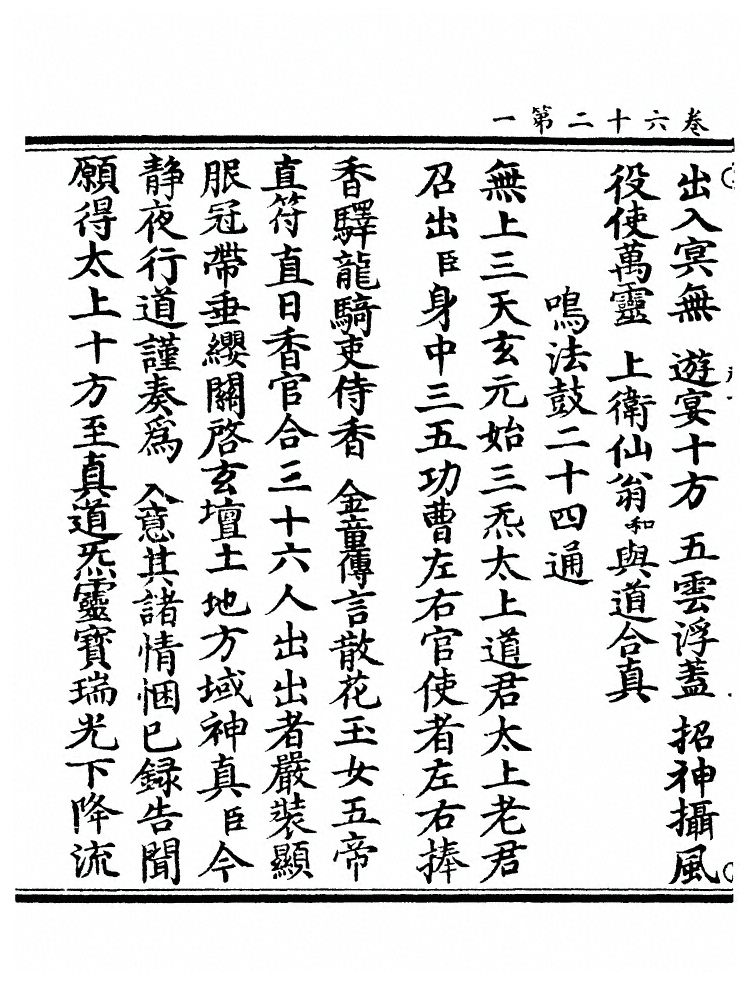 卷六十二第一
出入冥無　遊宴十方　五雲浮蓋　招神攝風
役使萬靈　上衛仙翁和與道合真
鳴法鼓二十四通
無上三天玄元始三炁太上道君太上老君
召出臣身中三五功曹左右官使者左右捧
香驛龍騎吏侍香　金童傳言散花玉女五帝
直符直日香官合三十六人出出者嚴裝顯
服冠帶垂纓關啓玄壇土地方域神真臣今
静夜行道謹奏為　入意其諸情悃已録告聞
願得太上十方至真道炁靈寶瑞光下降流